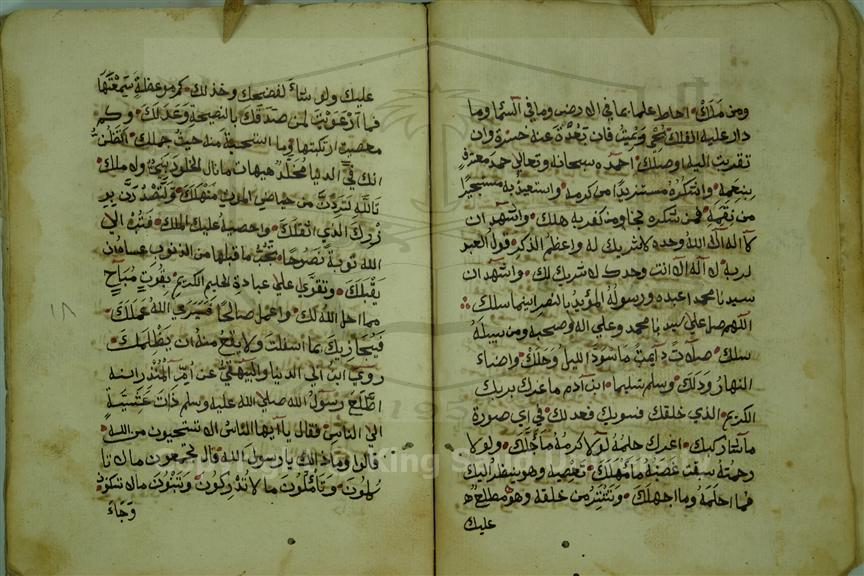 ومن مَلَكَ احاط علما بما في الارض وما في السما وما
دار عليه الفلك نحى وعيش فان تعدّة عنه حسرة وان
تقربت اليه اوصلك احمده سبحانه وتعالى حمد معترف
بنعمه واشكره مستزيدًا من كرمه واستعيذ به مستجيرا
من نقمه فمن شكره نجى ومن كفر به هلك واشهد ان
لآ اله الا الله وحده لا شريك له واعظم الذكر قول العبد
لربه لا اله الا انت وحدك لا شريك لك واشهد ان
سيدنا محمدا عبده ورسوله المؤيد بالنصر اينما سلك
اللهم صل على سيدنا محمد وعلى اله وصحبه ومن سبيله
سلك صلاةً دآيمةً ما سودّ الليل وحلك واضاء
النهار ودلك وسلم تسليما ابن آدم ما غرك بربك
الكريم الذي خلقك فسوك فعدلك في اي صورة
ما شاء ركبك اغرك حلمه لولا كرمه ما أجّلك ولولا
رحمته سبقت غضبه ما مهلك تعصيه وهو ينظر اليك
فما احلمه وما اجهلك وتستتر من خلقه وهو مطلع
عليك
عليك ولو شاء لفضحك وخذلك كم من عظة سمعتها
فما ارعويت لمن صدقك بالنصيحة وعدلك وكم
معصية ارتكبتها وما استحيت منه حيث حملك اتظن
انك في الدنيا مخلّد هيهات ما نال الخلود نبي ولا ملك
تالله لتردن من حياض الموت منهلك ولتصدرن بـ
وزرك الذي اثقلك واحصيه عليك الملك فتب الا
الله توبة نصوحا تجبّ ما قبلها من الذنوب عساه ان
يقبلك وتقوّى على عبادة الحليم الكريم بقوت مباح
مما احل الله لك واعمل صالحا فسيرى الله عملك
فيجازيك بما اسلفت ولا يقع منه ان يظلمك
روى ابن ابي الدنيا والبيهقي عن ام المنذر انه
اطّلع رسول الله صلى الله عليه وسلم ذات عشية
الى الناس فقال يا ايها الناس الا تستحيون من الله
قالوا وما ذلك يا رسول الله قال تجمعون ما لا تا
كلون وتأملون ما لا تدركون وتبنون ما لا تسكنون
وجاء
١٨